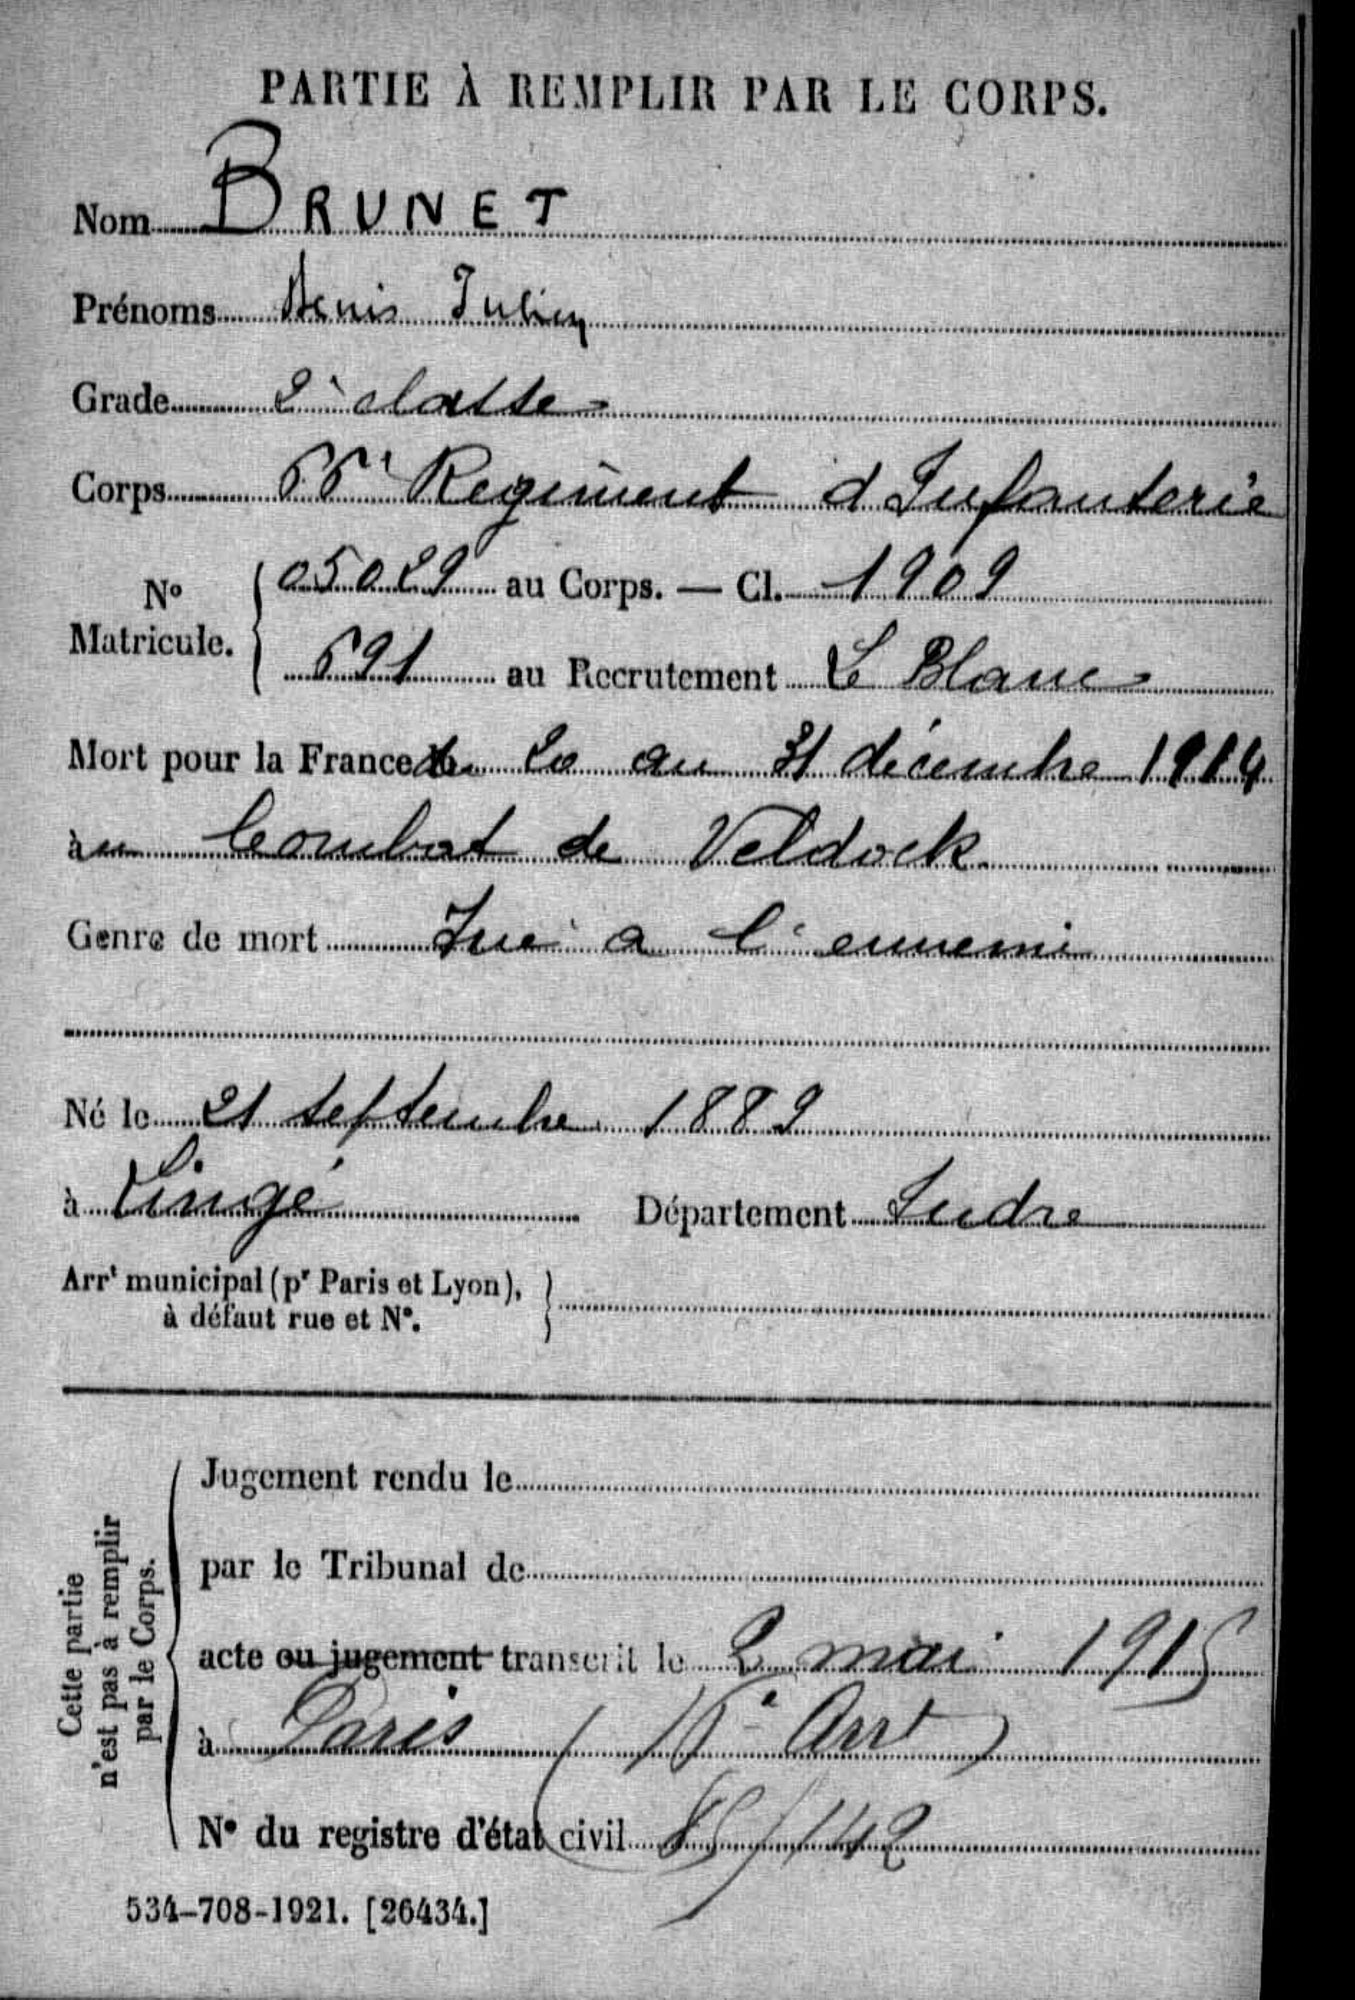 PARTIE À REMPLIR PAR LE CORPS.
Nom BRUNET
Prénoms Denis Julien
Grade 2e classe
Corps 66e Regiment d Infanterie
No Matricule. { 05029 au Corps. — Cl. 1909
691 au Recrutement Le Blanc
Mort pour la France du 20 au 31 décembre 1914
au Combat de Veldock
Genre de mort Tué a l'ennemi
Né le 21 septembre 1889
à Lingé Département Indre
Arrt municipal (pr Paris et Lyon),
à défaut rue et No.
Cette partie
n'est pas à remplir
par le Corps.
Jugement rendu le
par le Tribunal de
acte ou jugement transcrit le 2 mai 1915
à Paris ( Arrt )
No du registre d'état civil /142
534-708-1921. [26434.]